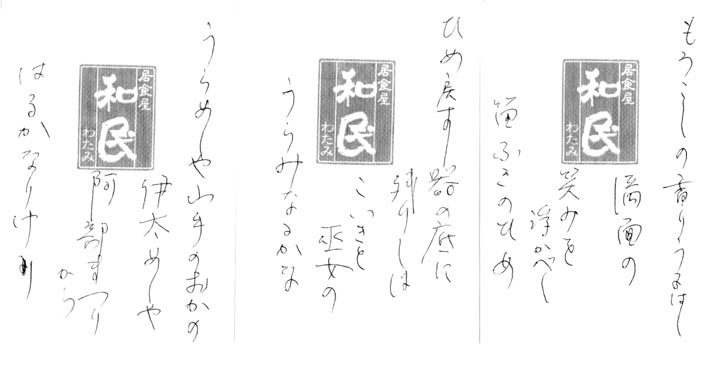 もろこしの香りうるはし
満面の
笑みを
浮かべし
笛ふきのひめ
居食屋
和民
わたみ
ひめ戻す
器の底に
残りしは
こいきと
巫女の
うらみなるかな
居食屋
和民
わたみ
うらめしや山手のおかの
伊太めしや
阿部まつり
から
はるかなりけり
居食屋
和民
わたみ